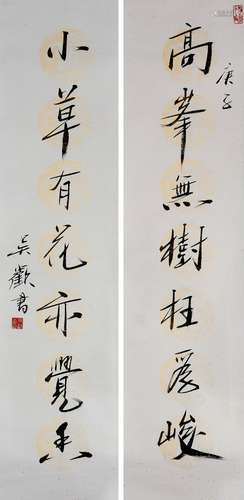 庚子
高峯無樹枉爲峻
小草有花亦覺香
吳歡書